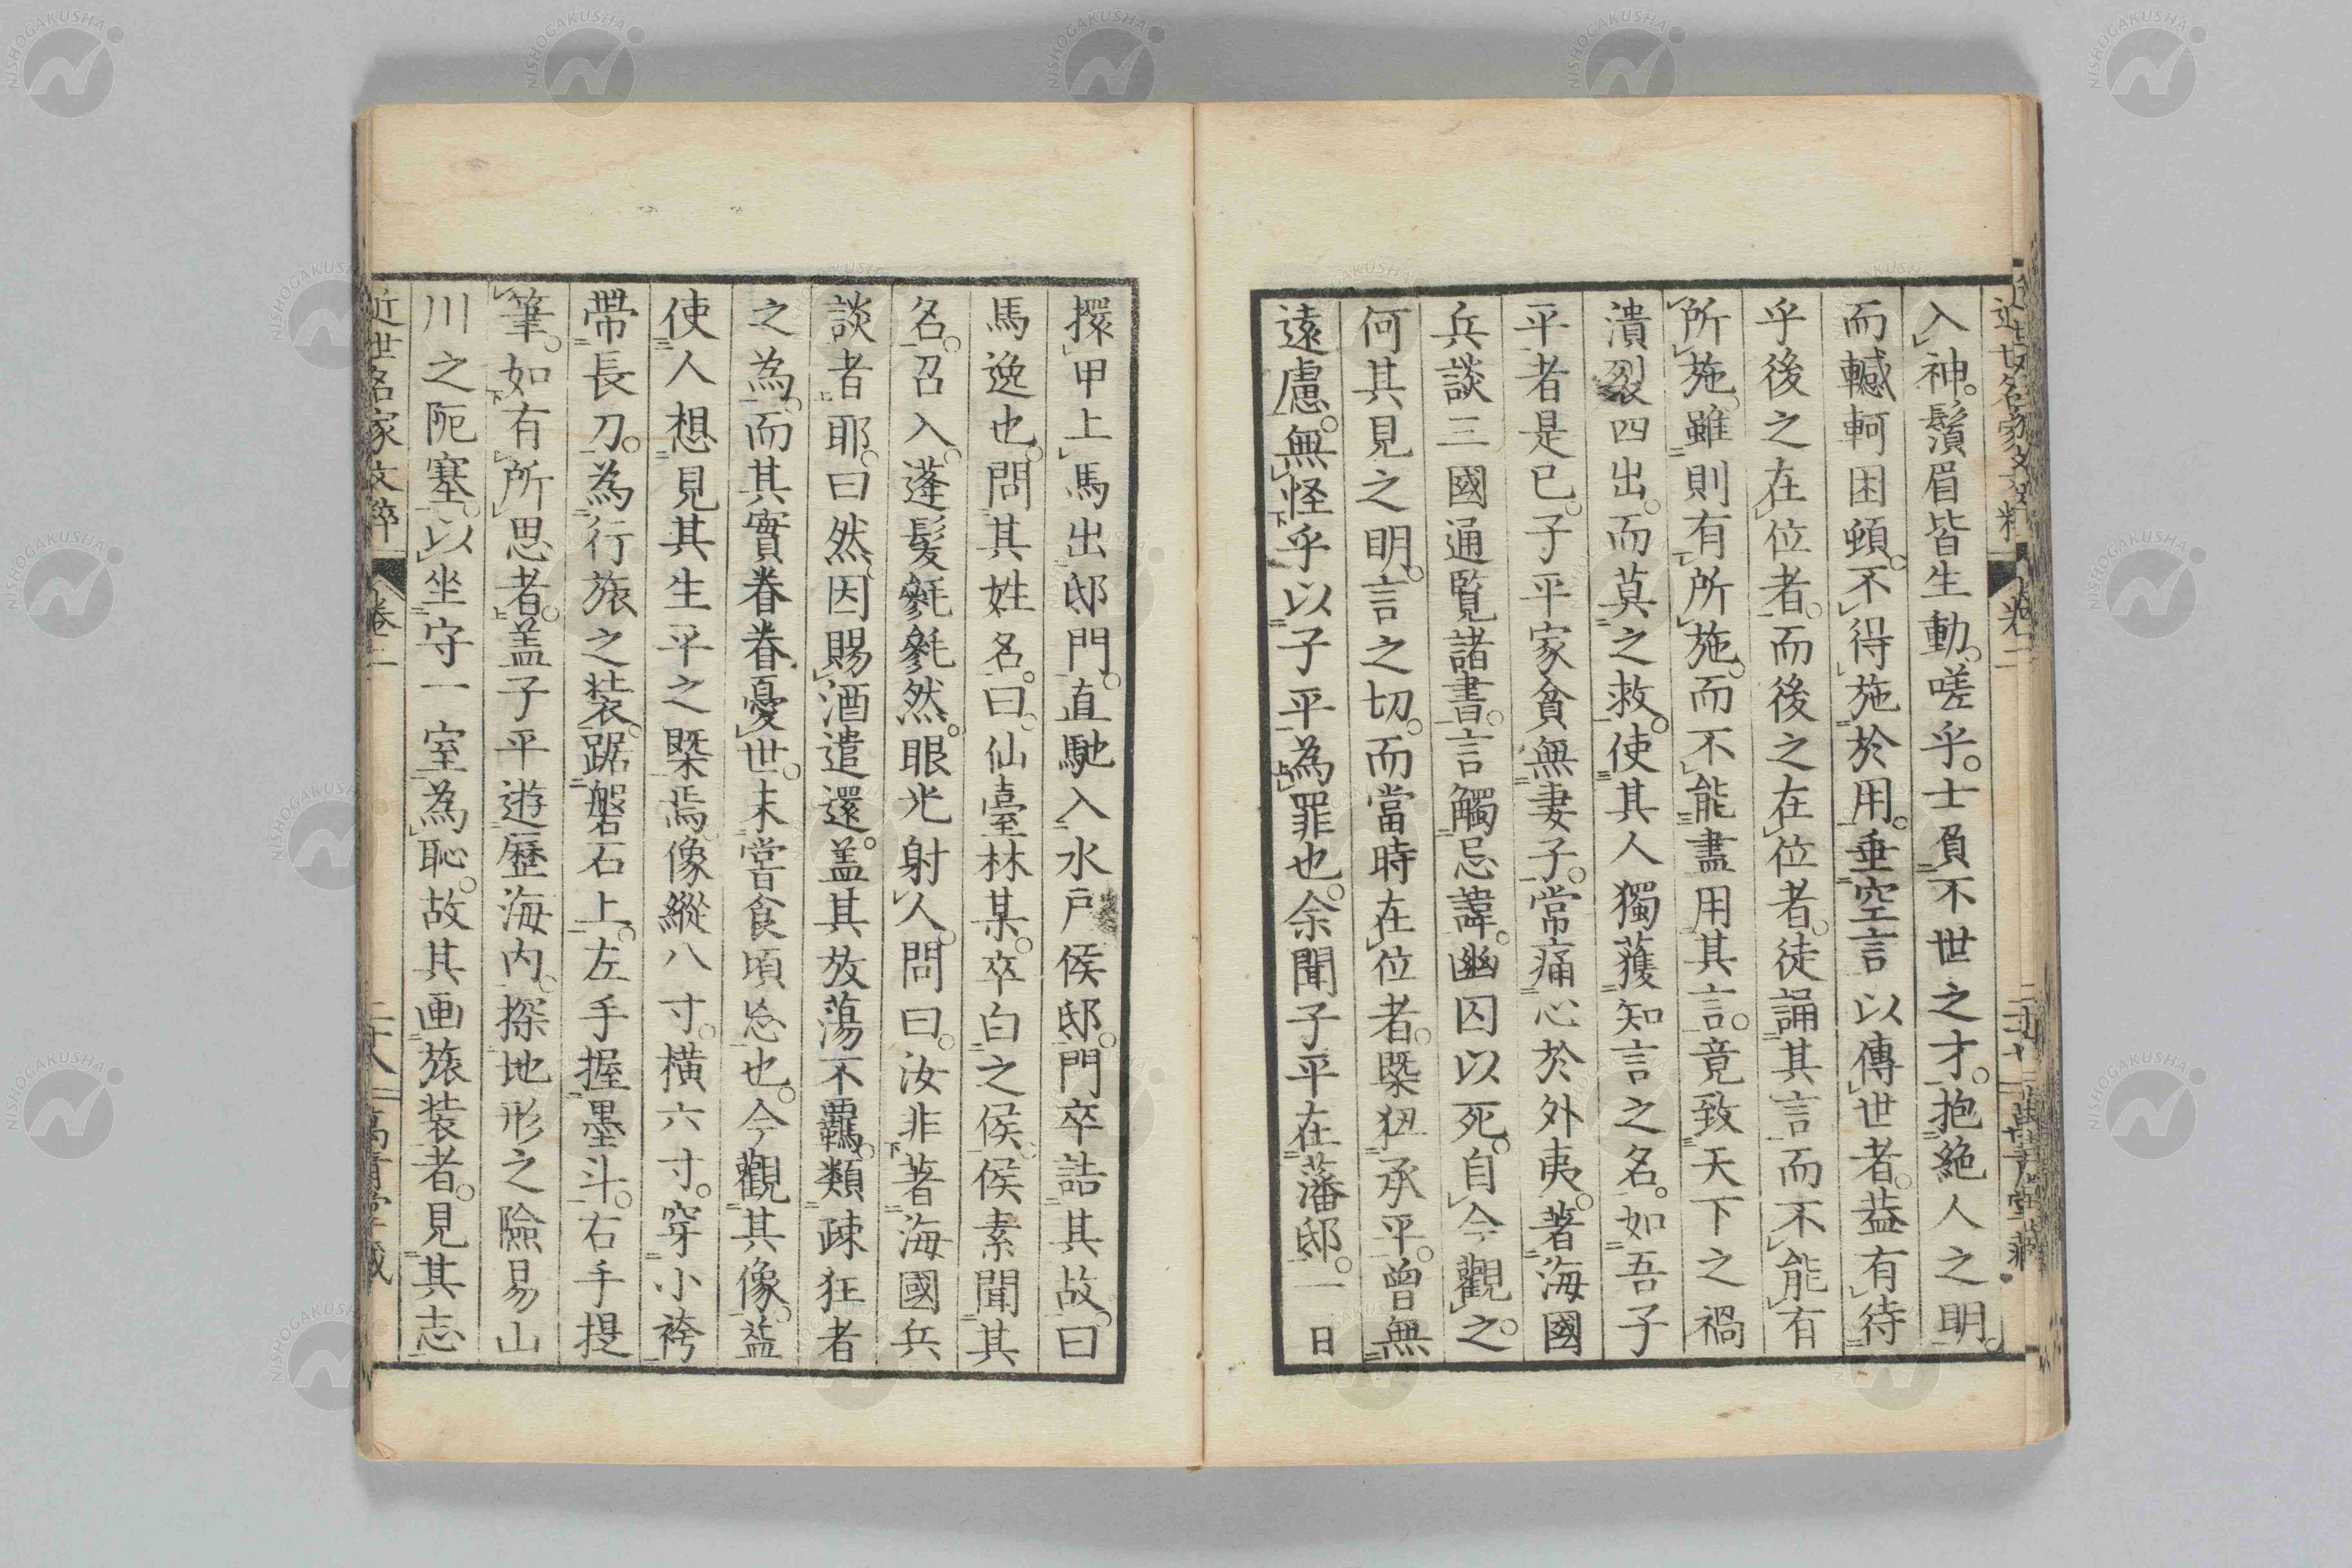 入神。鬚眉皆生動。嗟乎。士負不世之才。抱絶人之明。
而轗軻困頓。不得施於用。垂空言以傳世者。葢有待
乎後之在位者。而後之在位者。徒誦其言而不能有
所施。雖則有所施。而不能盡用其言。竟致天下之禍
潰裂四出。而莫之救。使其人獨獲知言之名。如吾子
平者是已。子平家貧無妻子。常痛心於外夷。著海國
兵談三國通覧諸書。言觸忌諱。幽囚以死。自今觀之。
何其見之明。言之切。而當時在位者。槩狃承平。曾無
遠慮。無怪乎以子平為罪也。余聞子平在藩邸。一日
擐甲上馬出邸門。直馳入水戸侯邸。門卒詰其故。曰
馬逸也。問其姓名。曰。仙臺林某。卒白之侯。侯素聞其
名。召入。蓬髮毿毿然。眼光射人。問曰。汝非著海國兵
談者耶。曰然。因賜酒遣還。盖其放蕩不覊。類疎狂者
之為。而其實眷眷憂世。未嘗食頃忘也。今觀其像。益
使人想見其生平之槩焉。像縱八寸。横六寸。穿小袴
帶長刀。為行旅之装。踞磐石上。左手握墨斗。右手提
筆。如有所思者。盖子平遊歷海内。探地形之險易山
川之阨塞。以坐守一室為恥。故其画旅装者。見其志
近世名家文粹 卷二 二十八 萬青堂藏